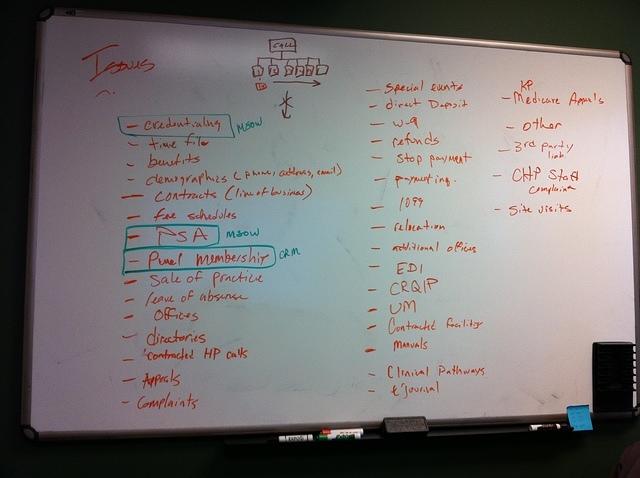 Issues
CALL
- credentialing MSOW
- time file
- benefits
- demographics (phone, address, email)
- contracts (line of business)
- fee schedules
- PSA MSOW
- Panel membership CRM
- Sale of practice
- leave of absence
- Offices
- directories
- contracted HP calls
- Appeals
- Complaints
- special events
- direct Deposit
- W-9
- refunds
- Stop payment
- payment inq.
- 1099
- relocation
- additional offices
- EDI
- CRQIP
- UM
- Contracted facility
- Manuals
- Clinical Pathways
- e'journal
KP
- Medicare Appeals
- other
- 3rd party
liab
- CHP Staff
complaint
- Site visits